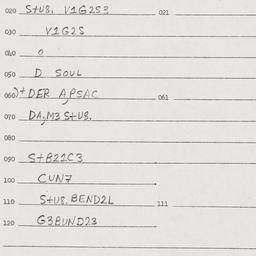 020 S+U8, V1G2S3 021
030 V1G2S
040 0
050 D SOUL
060)+DER A,PSAC 061
070 DA,M3 S+U8.
080
090 S+B22C3
100 CUN7
110 S+U8, BEND2L 111
120 G3BUND23